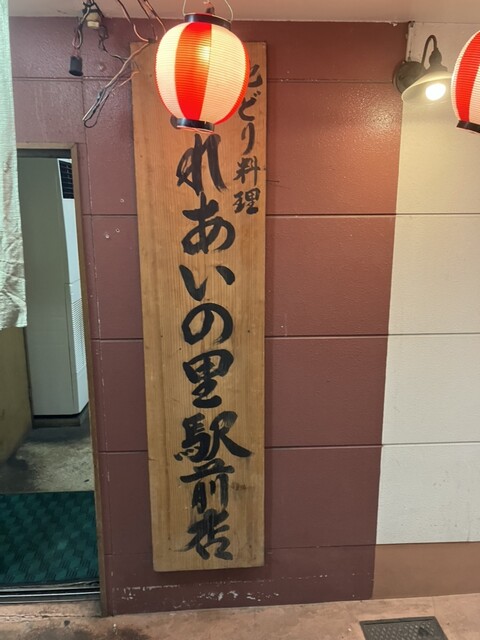 どり料理
れあいの里駅前店